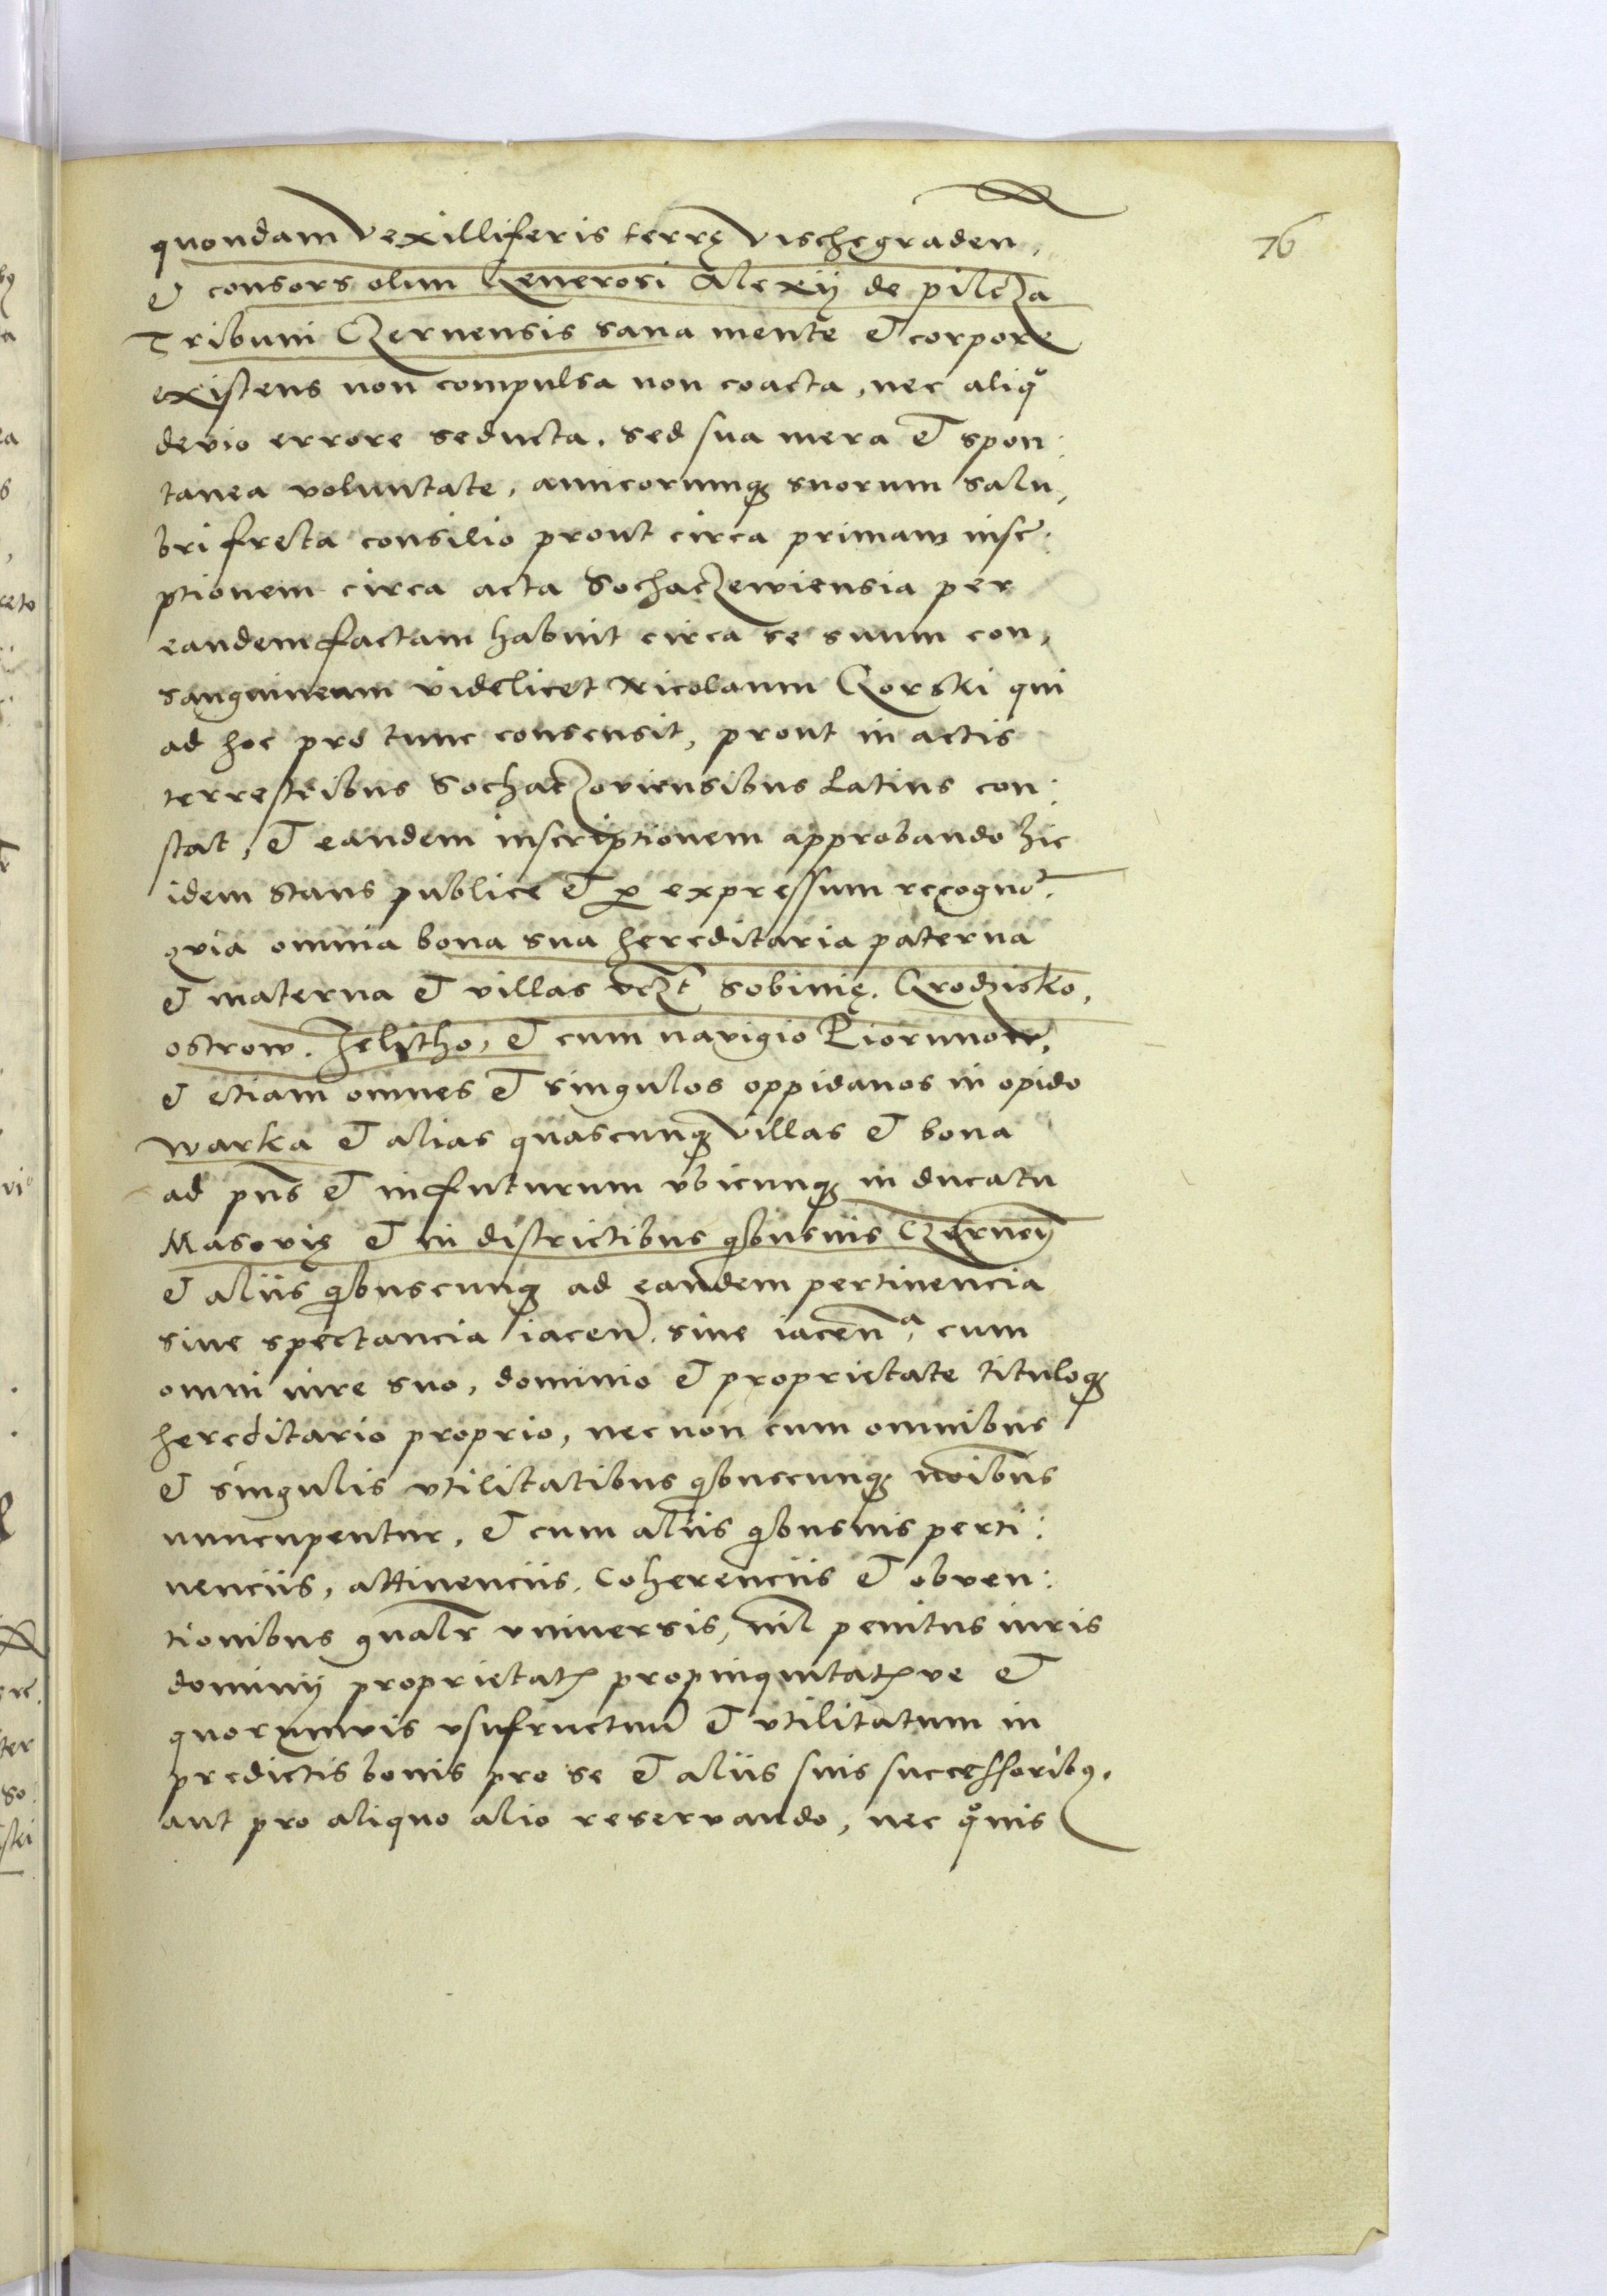 76
quondam Vexilliferis terrę Vischegraden,
et consors olim Generosi Alexÿ de pilcza
Tribuni Czernensis sana mente et corpore
existens non compulsa non coacta, nec aliqͦ
devio errore seducta. sed sua mera et spon:
tanea voluntate, amicorumqꝫ suorum salu,
bri freta consilio prout circa primam insc̄:
ptionem circa acta Sochaczewiensia per
eandem factam habuit circa se suum con,
sanguineum videlicet Nicolaum Gorski qui
ad hoc pro tunc consensit, prout in actis
terrestribus Sochaczoviensibus Latius con:
stat, et eandem inscriptionem approbando hic
idem stans publice et ꝑ expressum recogno.
qvia omnia bona sua hereditaria paterna
et materna et villas vczt Sobinię. Grodzisko,
ostrow. et cum navigio Piorunow,
et etiam omnes et singulos oppidanos in opido
warka et alias quascunqꝫ villas et bona
ad pn̄s et in futurum vbicunqꝫ in ducatu
Masovię et in districtibus qͥbusuis Czernen̄
et aliis qͥbuscunqꝫ ad eandem pertinencia
siue spectancia iacen̄. siue iacenᵃ, cum
omni iure suo, dominio et proprietate tituloqꝫ
hereditario proprio, nec non cum omnibus
et singulis vtilitatibus qͥbuscunqꝫ no̅ibus
nuncupentur, et cum aliis qͥbusuis perti:
nenciis, attinenciis, coherenciis et obven:
tionibus gn̄alr vniuersis, nil penitus iuris
dominÿ proprietatꝭ propinquitatꝭve et
quorumvis vsufructuū et vtilitatum in
predictis bonis pro se et aliis suis successoribꝰ.
aut pro aliquo alio reservando, nec qͦuis